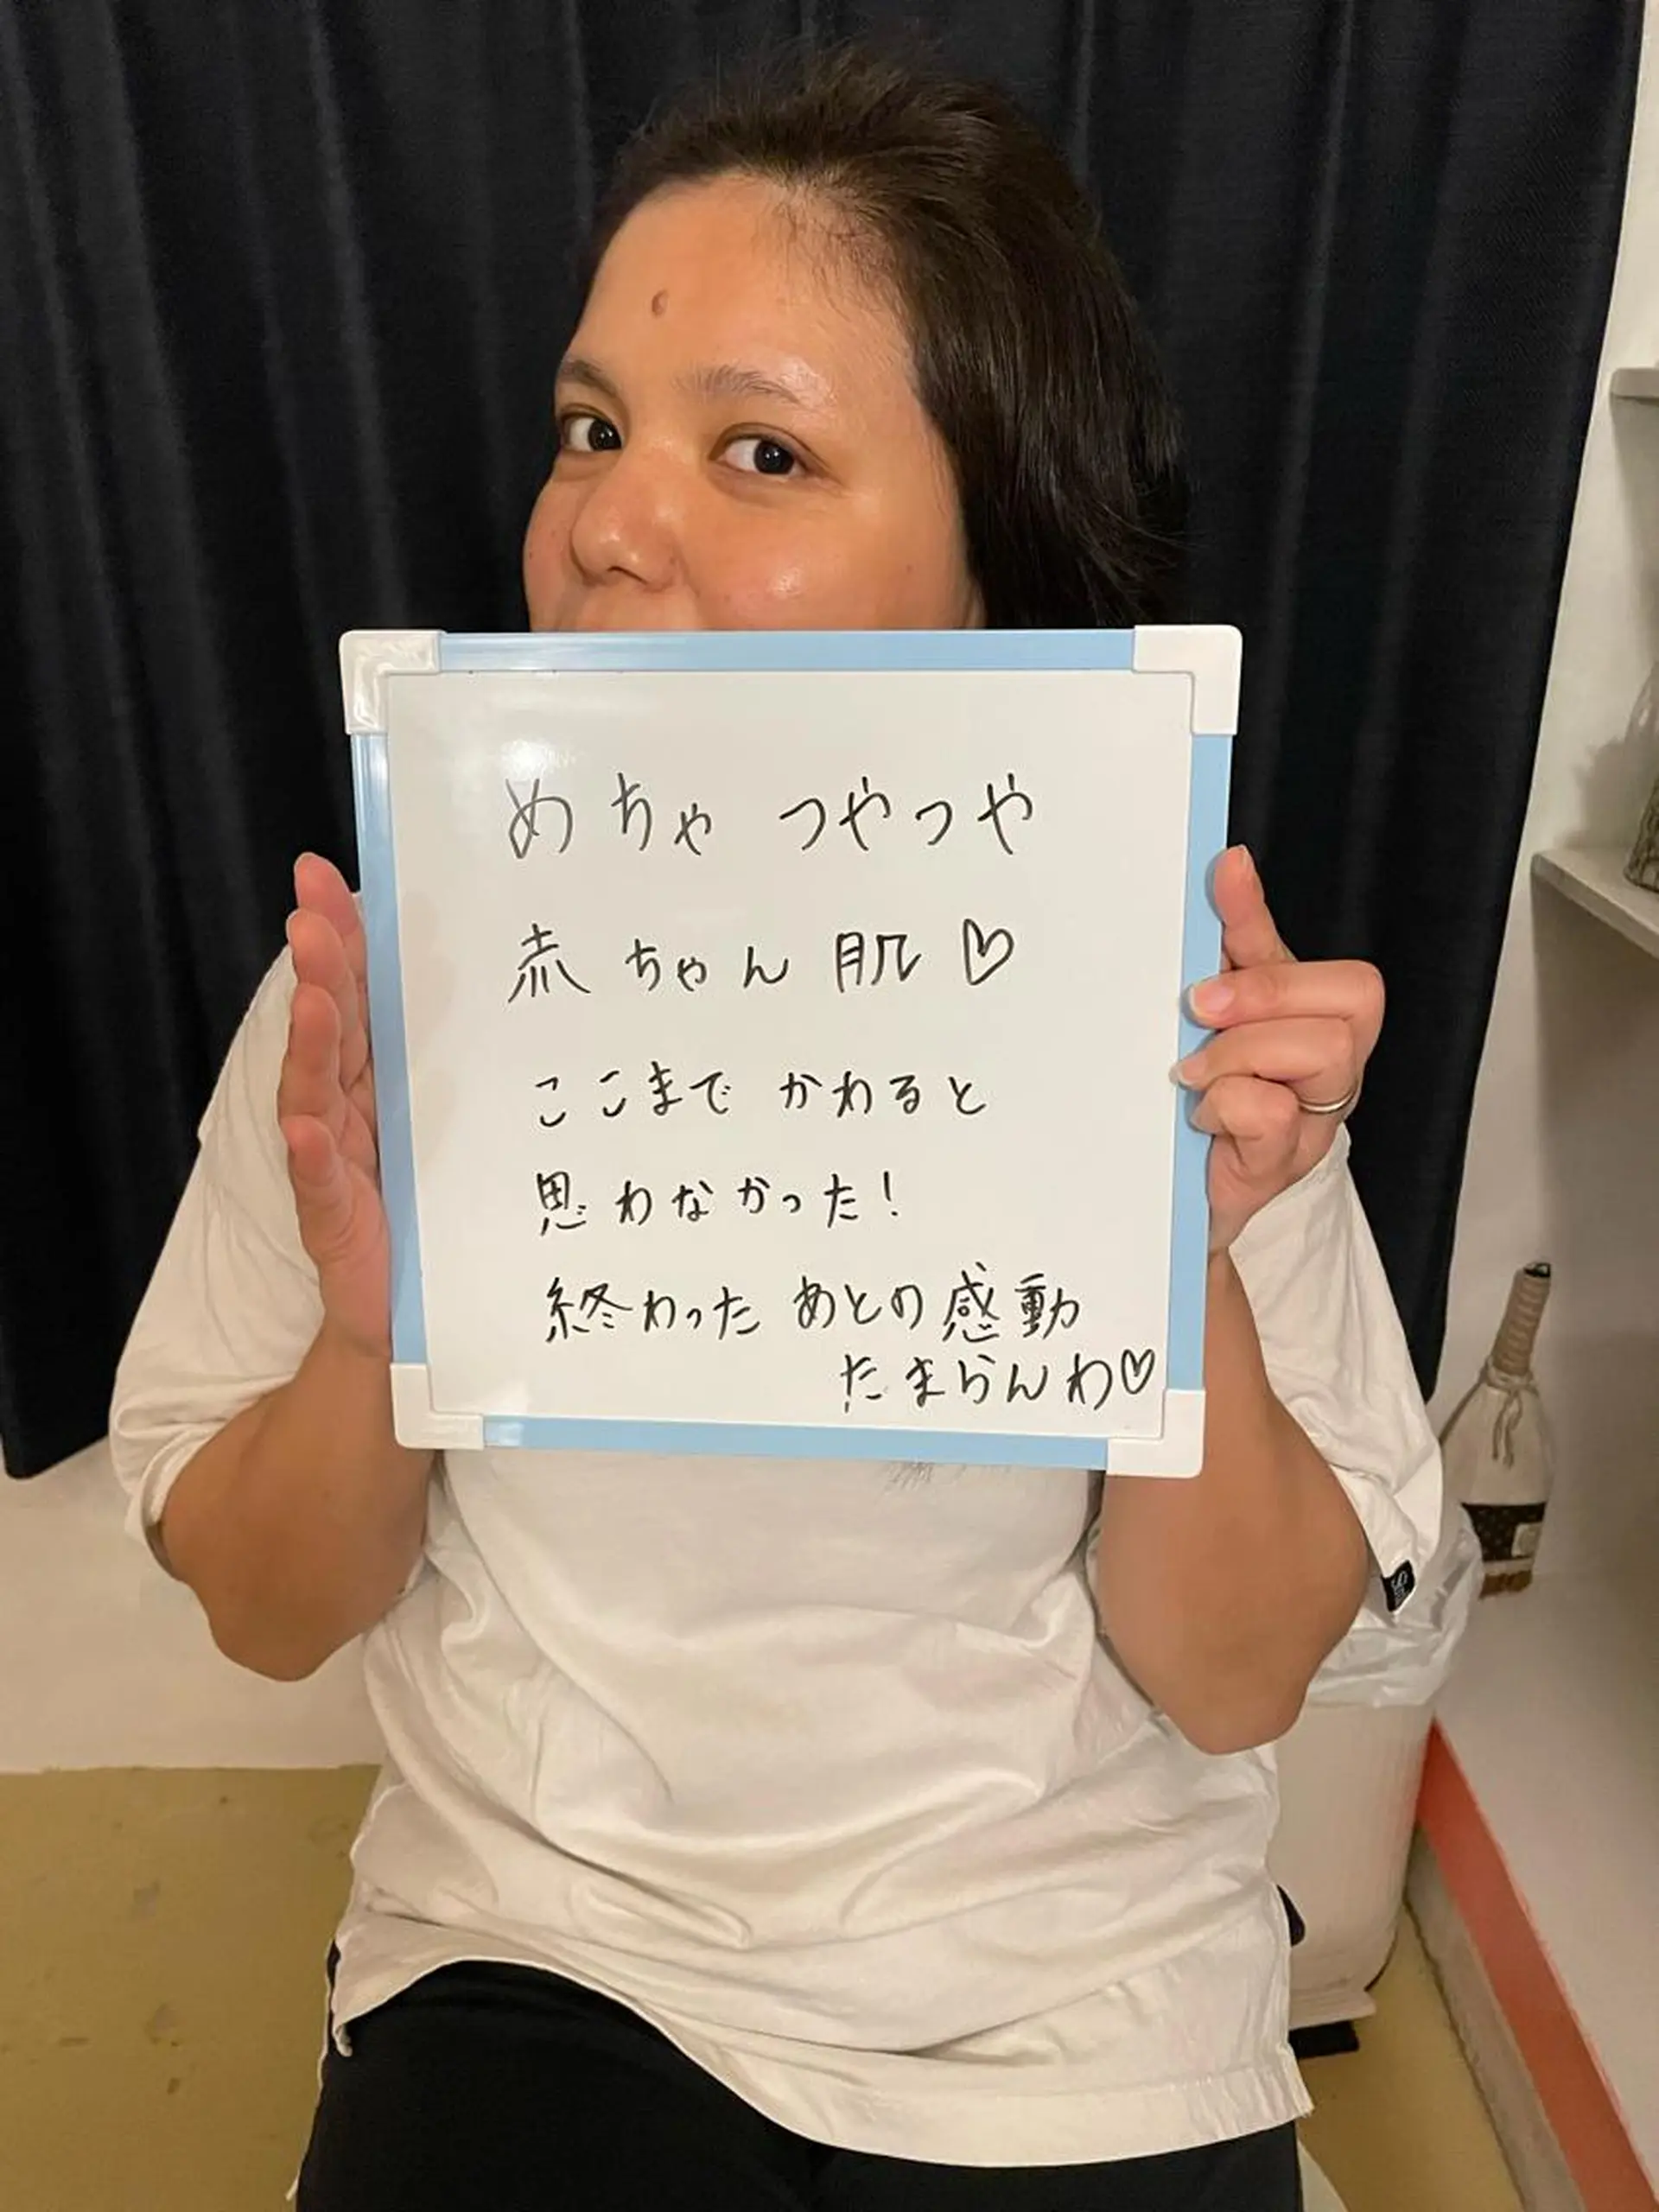 めちゃ つやつや
赤ちゃん肌♡
ここまで かわると
思わなかった!
終わった あとの感動
たまらんわ♡